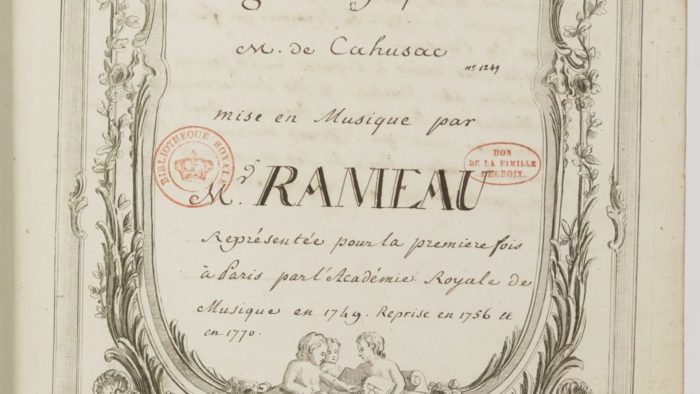 M. de Cahusac
n.º 1249
mise en Musique par
BIBLIOTHEQUE ROYALE
DON
DE LA FAMILLE
DECROIX.
M.r RAMEAU
Représentée pour la premiere fois
à Paris par l'Académie Royale de
Musique en 1749. Reprise en 1756 et
en 1770.